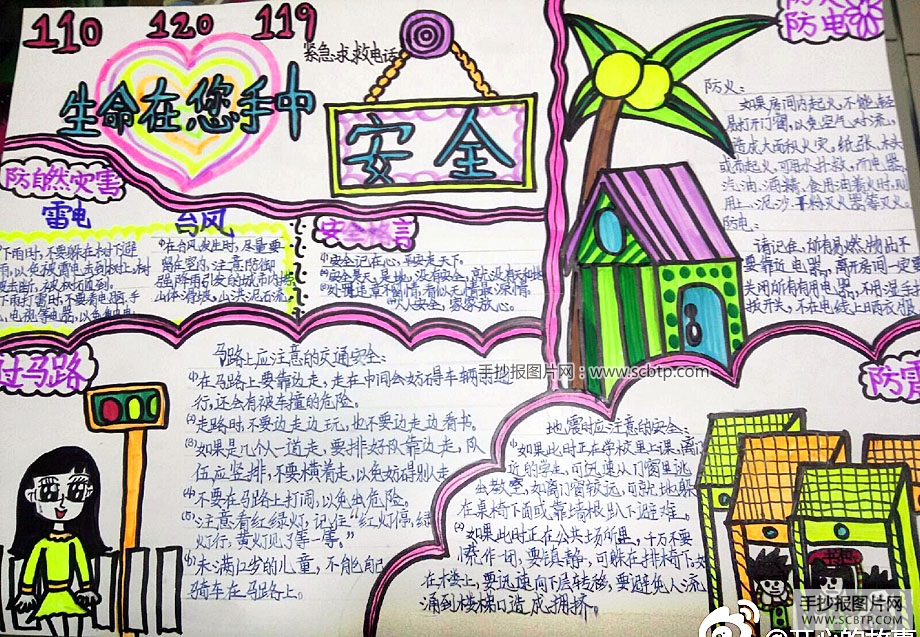 110 120 119
紧急求救电话
生命在您手中
安全
防电
防自然灾害
雷电
台风
下雨时,不要躲在树下避
雨,以免被雷电击倒
下雨打雷时,不要看电视,手
在台风发生时,尽量要
留在室内,注意防御
强降雨引发的城市内涝
山体滑坡,山洪泥石流
安全格言
①安全记在心,平安走天下。
防火:
如果房间内起火,不能轻
易打开门窗,以免空气对流,
造成大面积火灾,纸张、木头
或布起火,可用水扑救,而电器、
汽油、酒精、食用油着火时,则
用土、泥沙、干粉灭火器等灭火。
防电:
请记住,所有易燃物品不
要靠近电器,离开房间一定要
关闭所有用电器,不用湿手
拔开关,不在电线上晒衣服
过马路
马路上应注意的交通安全:
(1)在马路上要靠边走,走在中间会妨碍车辆前进
行,还会有被车撞的危险。
(2)走路时不要边走边玩,也不要边走边看书。
(3)如果是几个人一道走,要排好队靠边走,队
伍应竖排,不要横着走,以免妨碍别人走
(4)不要在马路上打闹,以免出危险。
(5)注意看红绿灯,记住“红灯停,绿
灯行,黄灯见了等一等。”
(6)未满12岁的儿童,不能自己
骑车在马路上。
手抄报图片网:www.scbtp.com
地震时应注意的安全:
(1)如果此时正在学校里上课,离门
近的学生,可迅速从门窗里逃
出教室,如离门窗较远,可就地躲
在桌椅下面或靠墙根趴下避难。
(2)如果此时正在公共场所里,千万不要
慌作一团,要镇静,可躲在排椅下,如
在楼上,要迅速向下层转移,要避免人流
涌到楼梯口造成拥挤。
手抄报图片网
WWW.SCBTP.COM